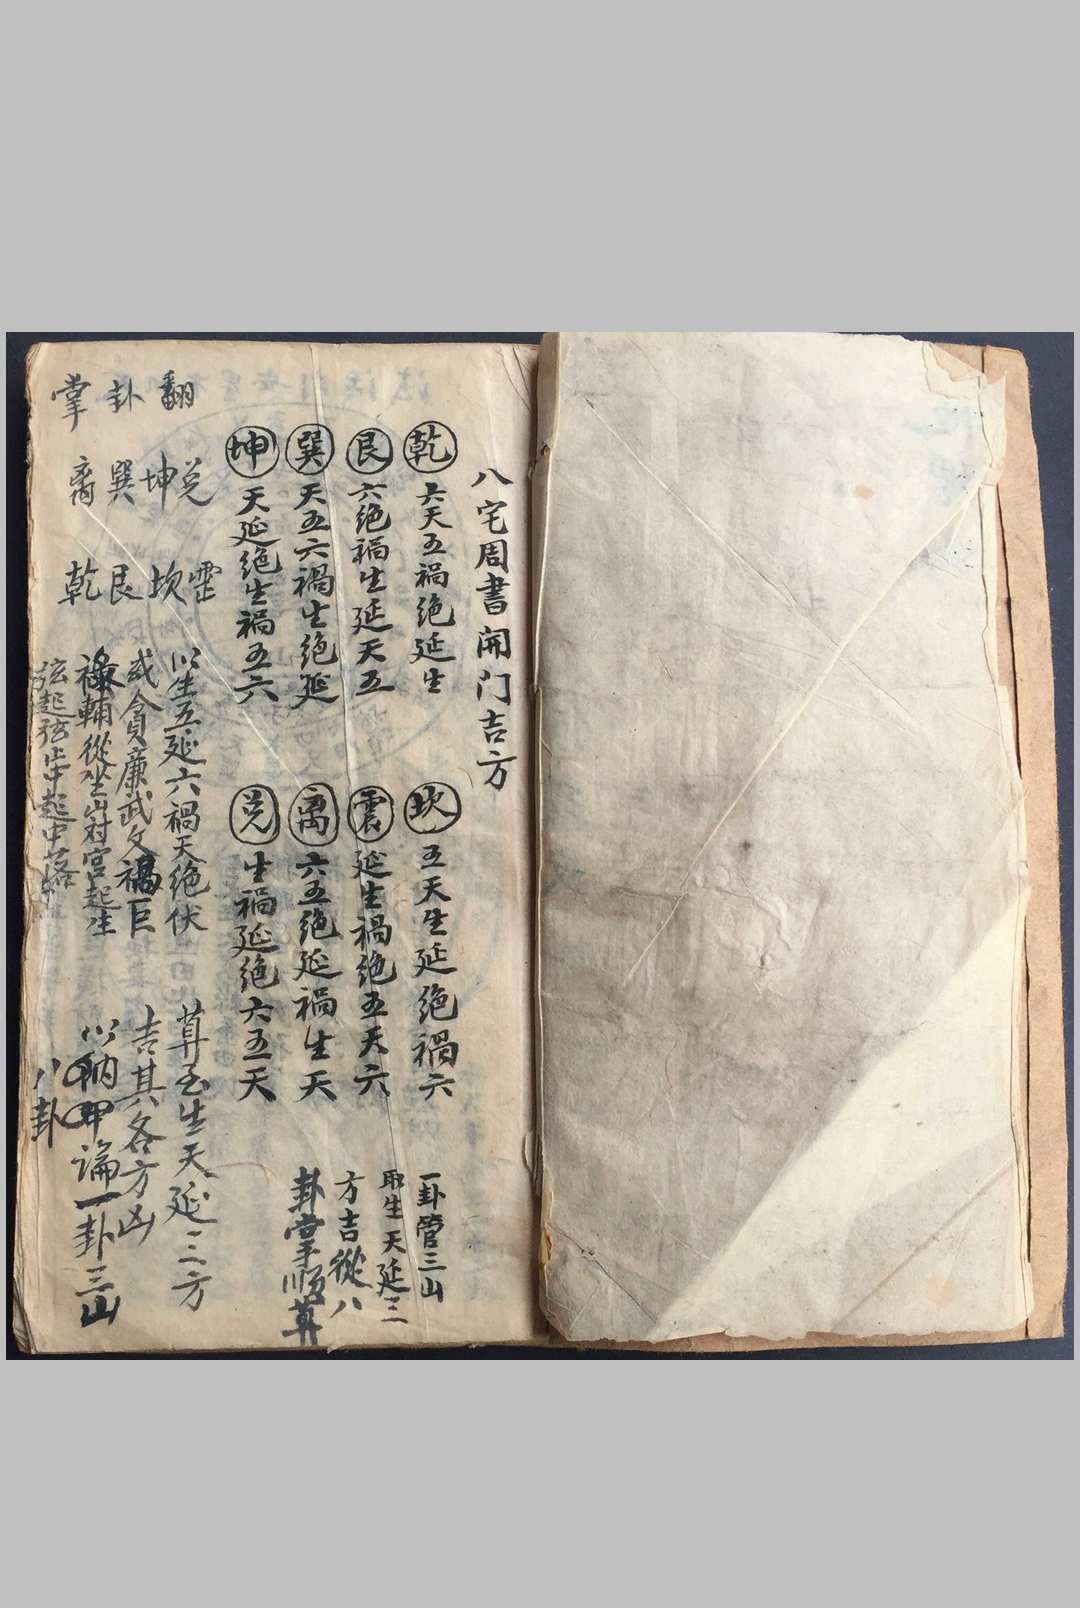 八宅周書開门吉方
乾 六天五禍絶延生
坎 五天生延絶禍六
艮 六絶禍生延天五
震 延生禍絶五天六
巽 天五六禍生絶延
离 六五絶延禍生天
坤 天延絶生禍五六
兑 生禍延絶六五天
一卦管三山
取生天延三
方吉從八
卦掌順算
翻卦掌
兑坤巽离
坎艮乾
以生五延六禍天绝伏
或貪廉武文禄巨
禄輔從坐山对宫起生
弦起弦止中起中落
算至生天延三方
吉其各方凶
以納甲論一卦三山
八卦